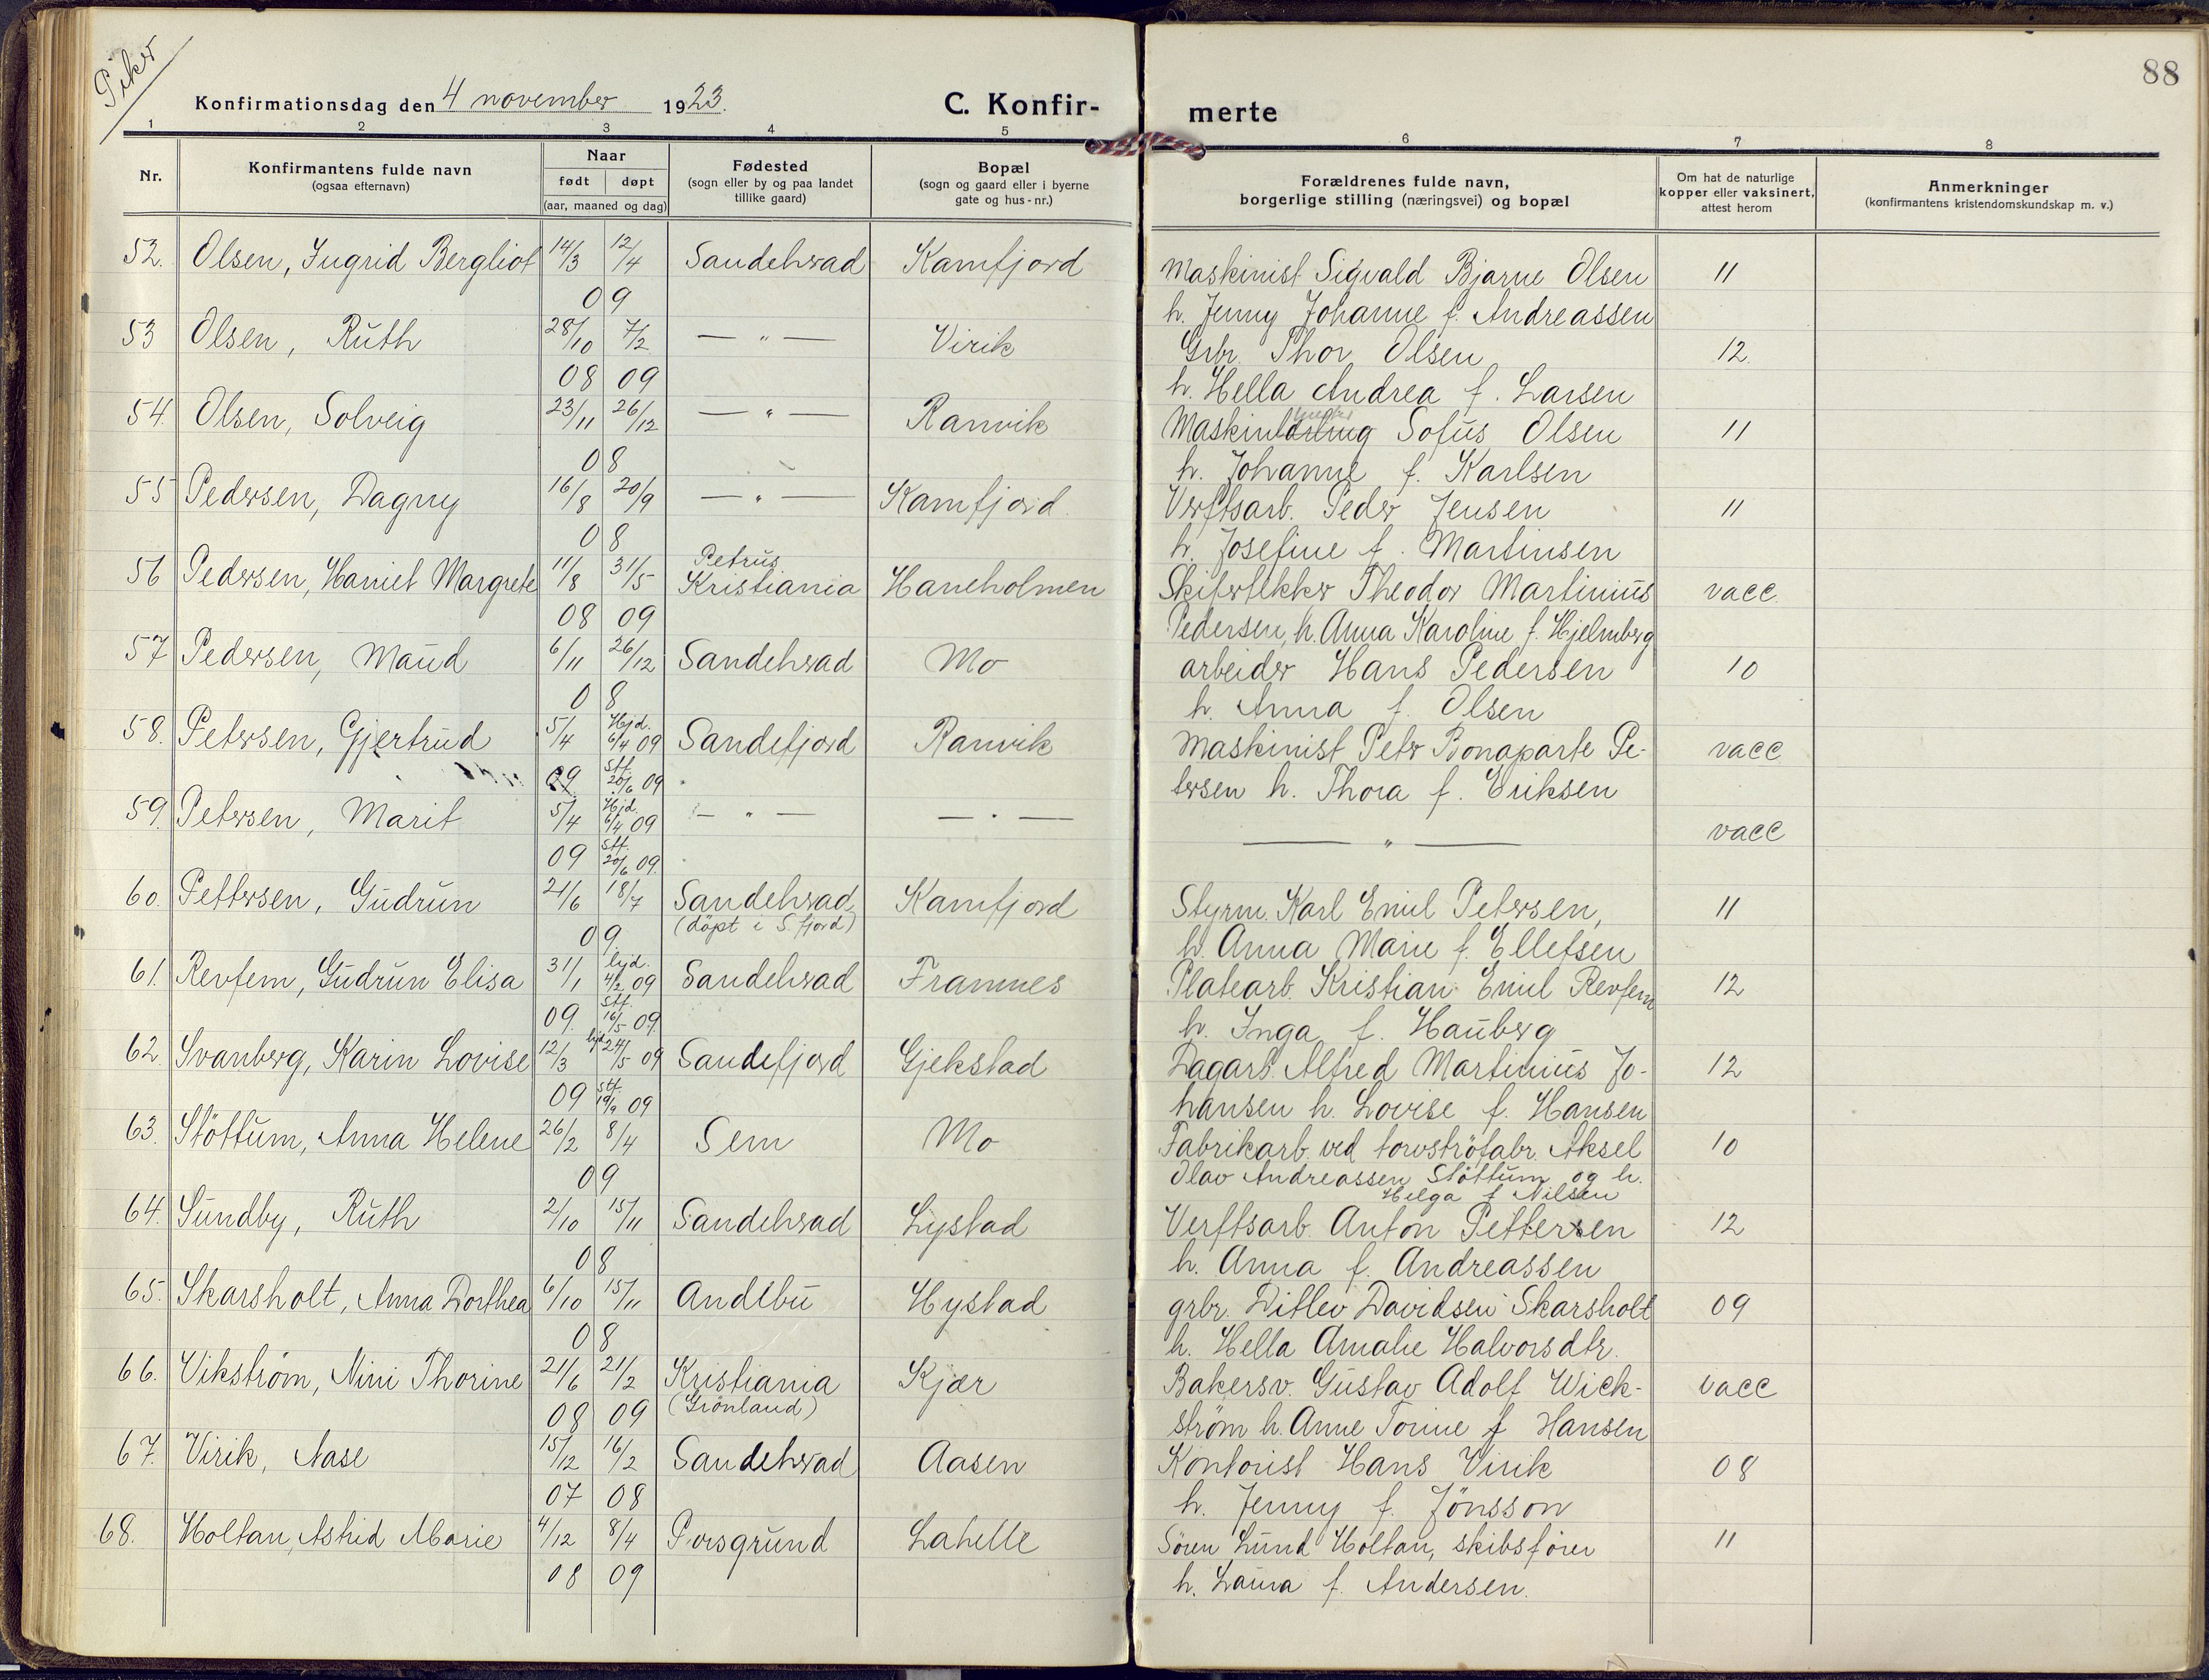 Piker
88
Konfirmationsdag den 4 november 1923. C. Konfir- merte
1 2 3 4 5 6 7 8
Nr. Konfirmantens fulde navn (ogsaa efternavn) Naar født døpt (aar, maaned og dag) Fødested (sogn eller by og paa landet tillike gaard) Bopæl (sogn og gaard eller i byerne gate og hus-nr.) Forældrenes fulde navn, borgerlige stilling (næringsvei) og bopæl Om hat de naturlige kopper eller vaksinert, attest herom Anmerkninger (konfirmantens kristendomskundskap m. v.)
52. Olsen, Ingrid Bergliot 14/3 12/4 Sandehrad Kamfjord Maskinist Sigvald Bjarne Olsen 11
09 h. Jenny Johanne f. Andreassen
53 Olsen, Ruth 28/10 7/2 — " — Virik Grbr. Thor Olsen 12.
08 09 h. Hella Andrea f. Larsen
54. Olsen, Solveig 23/11 26/12 — " — Ranvik Maskin Sofus Olsen 11
08 h. Johanne f. Karlsen
55 Pedersen, Dagny 16/8 20/9 — " — Kamfjord. Verftsarb. Peder Jensen 11
08 h. Josefine f. Martinsen
56 Pedersen, Haniet Margrete 11/8 31/5 Petrus Kristiania Haneholmen Skifertekker Theodor Martinius vacc.
08 09 Pedersen, h. Anna Karoline f. Hjelmberg
57 Pedersen, Maud 6/11 26/12 Sandehrad Mo arbeider Hans Pedersen 10
08 h. Anna f. Olsen
58. Petersen, Gjertrud 5/4 Hjd. 6/4 09 Sandefjord Ranvik Maskinist Peter Bonaparte Pe- vacc
09 stf. 20/6 09 tersen h. Thora f. Eriksen
59. Petersen, Marit 5/4 Hjd 6/4 09 — " — — " — — " — vacc
09 stf. 20/6 09.
60. Pettersen, Gudrun 21/6 18/7 Sandehrad (döpt i S.fjord) Kamfjord Styrm. Karl Emil Petersen, 11
09. h. Anna Marie f. Ellefsen
61. Revfem, Gudrun Elisa 31/1 hjd. 4/2 09 Sandehrad Framnes Platearb. Kristian Emil Revfem 12
09. Stf. 16/5 09. h. Inga f. Hauberg
62. Svanberg, Karin Lovise 12/3 hjd 24/5 09 Sandefjord Gjekstad Dagarb. Alfred Martinius Jo- 12
09 Stf. 19/9 09 hansen h. Lovise f. Hansen
63. Stöttum, Anna Helene 26/2 8/4 Sem Mo Fabrikarb. ved torvströfabr. Aksel 10
09 Olav Andreassen Stöttum og h.
Helga f Nilsen
64. Sundby, Ruth 2/10 15/11 Sandehrad Lystad Verftsarb. Anton Pettersen 12
08 h. Anna f. Andreassen
65. Skarsholt, Anna Dorthea 6/10 15/11 Andebu Hystad grbr. Ditlev Davidsen Skarsholt 09
08 h. Hella Amalie Halvorsdtr.
66. Vikström, Nini Thorine 21/6 21/2 Kristiania (Grönland) Kjær Bakersv. Gustav Adolf Wick- vacc
08 09 ström h. Anne Torine f Hansen
67. Virik, Aase 15/12 16/2 Sandehrad Aasen Kontorist Hans Virik 08
07 08 h. Jenny f. Jönsson
68. Holtan, Astrid Marie 4/12 8/4 Porsgrund Lahelle Sören Lund Holtan, skibsförer 11
08 09 h. Laura f. Andersen.